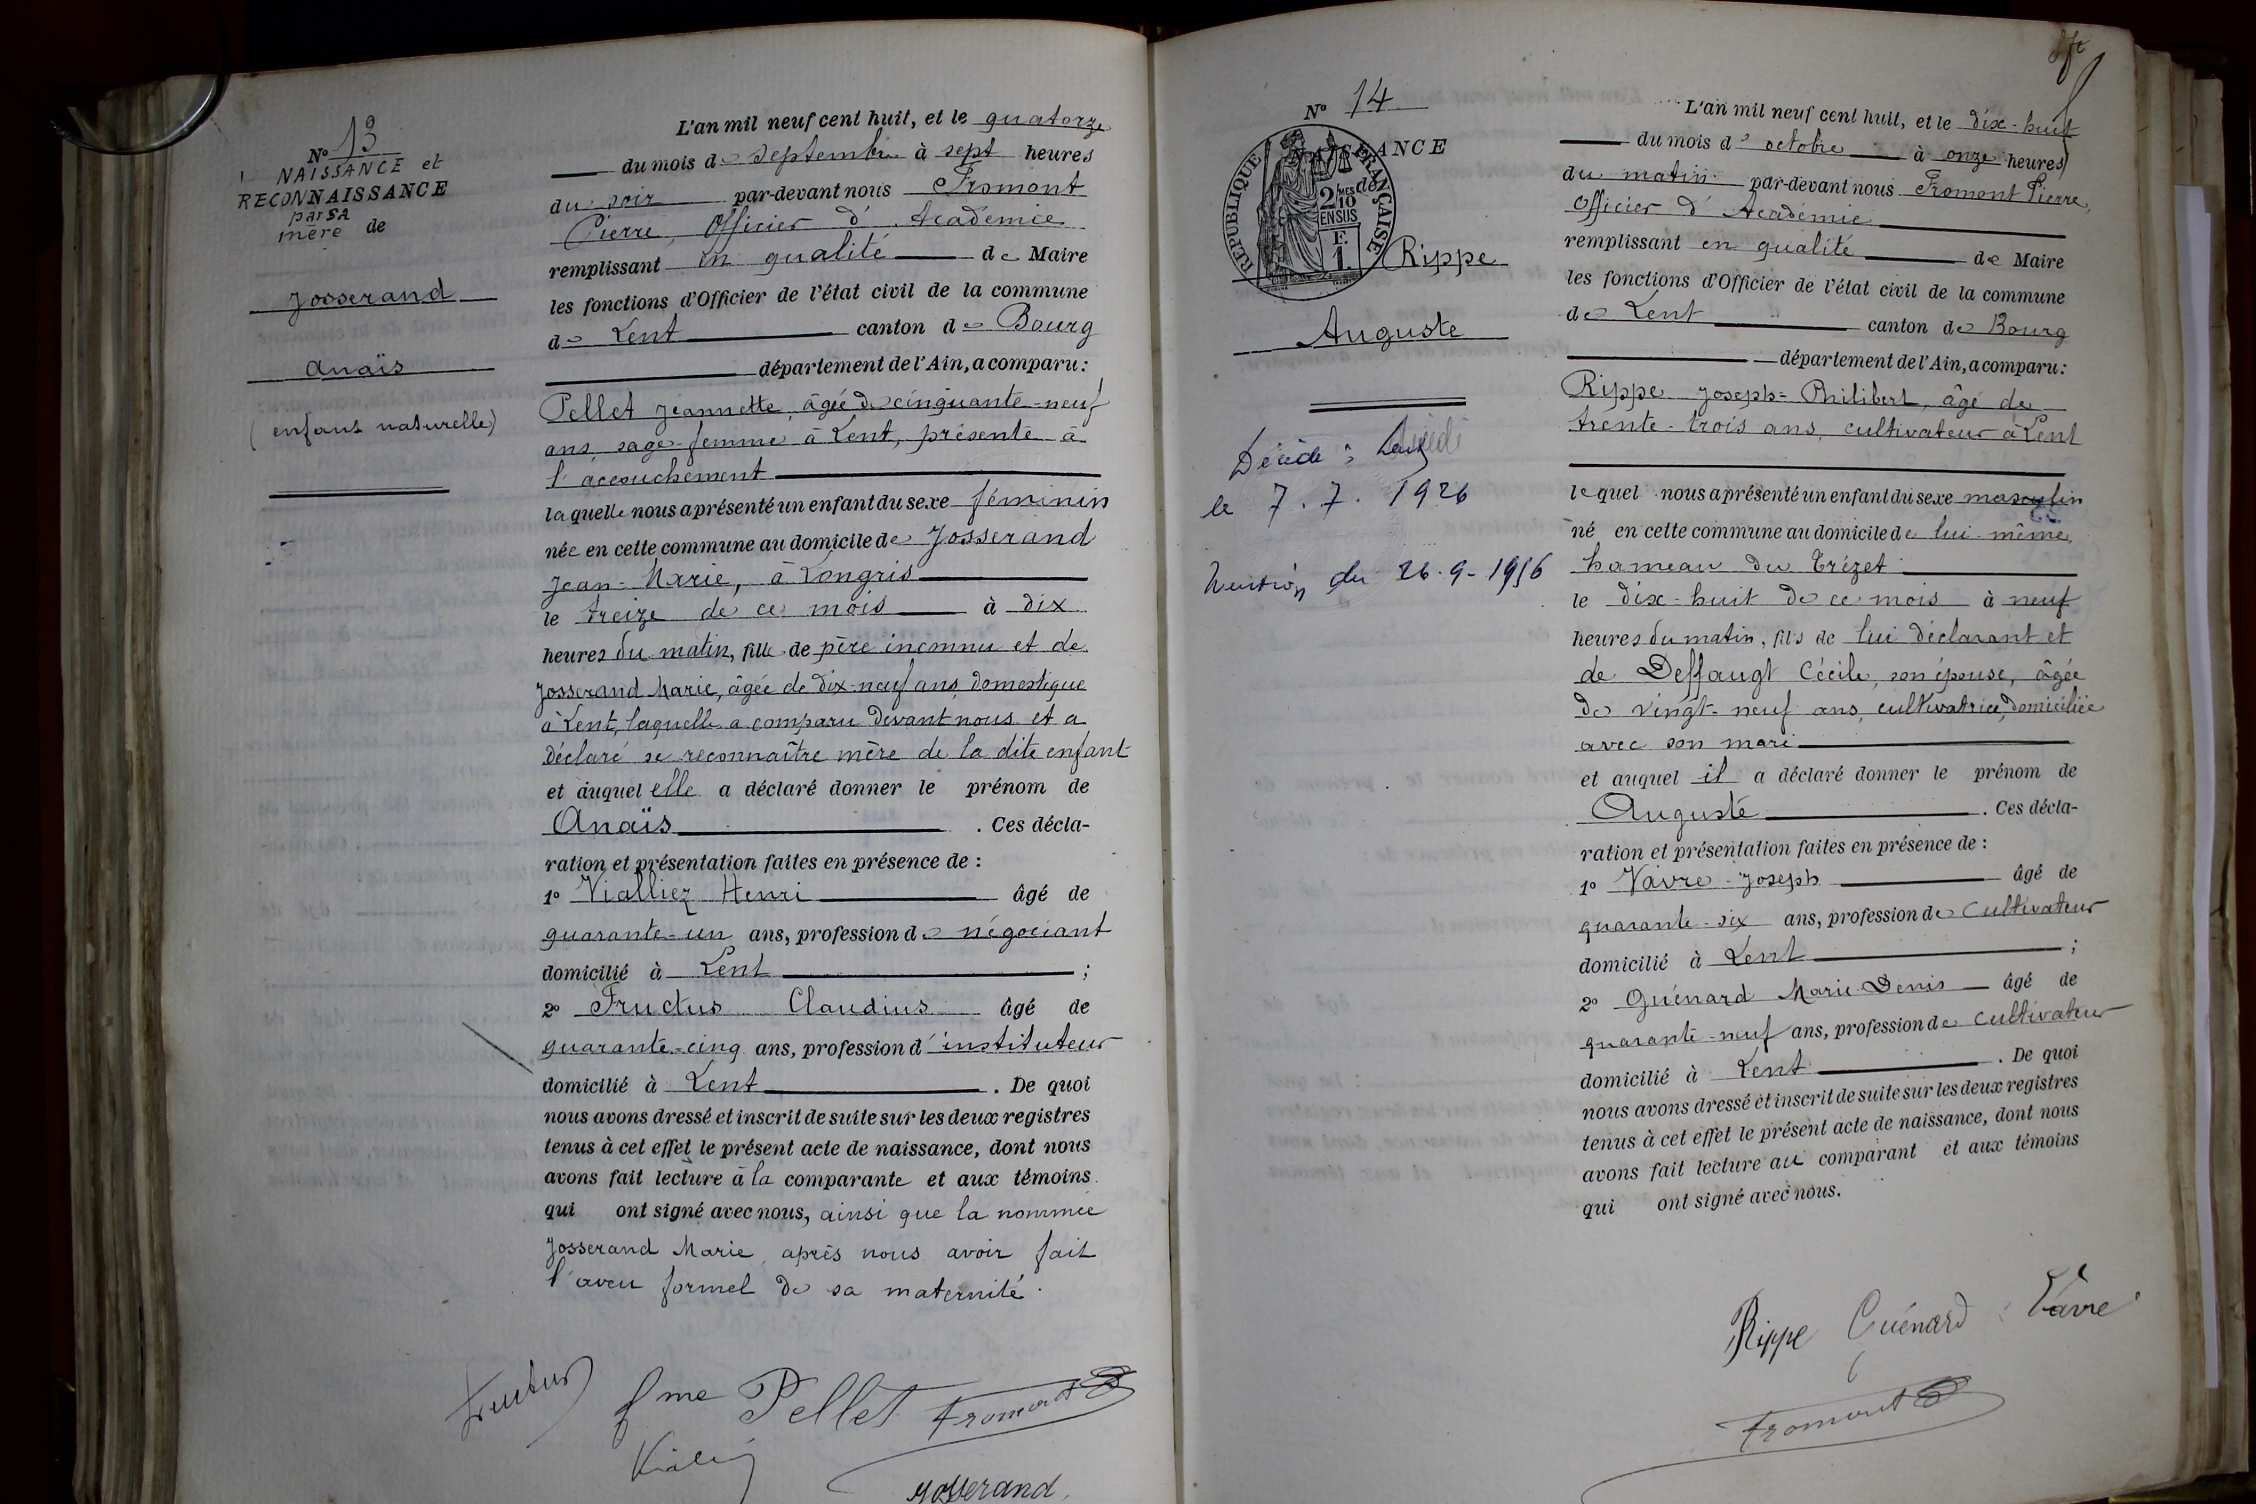 Nº 13
NAISSANCE et
RECONNAISSANCE
par SA
mère de
Josserand
Anaïs
(enfant naturelle)
L'an mil neuf cent huit, et le quatorze
du mois de septembre à sept heures
du soir par-devant nous Fromont
Pierre, Officier d'Académie
remplissant en qualité de Maire
les fonctions d'Officier de l'état civil de la commune
de Lent canton de Bourg
département de l'Ain, a comparu:
Pellet Jeannette, âgée de cinquante-neuf
ans, sage-femme à Lent, présente à
l'accouchement
laquelle nous a présenté un enfant du sexe féminin
née en cette commune au domicile de Josserand
Jean-Marie, à Longris
le treize de ce mois à dix
heures du matin, fille de père inconnu et de
Josserand Marie, âgée de dix-neuf ans, domestique
à Lent, laquelle a comparu devant nous et a
déclaré se reconnaître mère de la dite enfant
et auquel elle a déclaré donner le prénom de
Anaïs . Ces décla-
ration et présentation faites en présence de :
1º Vialliez Henri âgé de
quarante-un ans, profession de négociant
domicilié à Lent ;
2º Fructus Claudius âgé de
quarante-cinq ans, profession d'instituteur
domicilié à Lent . De quoi
nous avons dressé et inscrit de suite sur les deux registres
tenus à cet effet le présent acte de naissance, dont nous
avons fait lecture à la comparante et aux témoins
qui ont signé avec nous, ainsi que la nommée
Josserand Marie, après nous avoir fait
l'aveu formel de sa maternité.
Fructus fme Pellet Fromont
Josserand
Nº 14
NAISSANCE
de
RÉPUBLIQUE FRANÇAISE
2 MES
10
EN SUS
F.
1
Rippe
Auguste
Décédé à Lent
le 7.7.1926
Mention du 26-9-1956
L'an mil neuf cent huit, et le dix-huit
du mois d'octobre à onze heures
du matin par-devant nous Fromont Pierre,
Officier d'Académie
remplissant en qualité de Maire
les fonctions d'Officier de l'état civil de la commune
de Lent canton de Bourg
département de l'Ain, a comparu:
Rippe Joseph-Philibert, âgé de
trente-trois ans, cultivateur à Lent
lequel nous a présenté un enfant du sexe masculin
né en cette commune au domicile de lui-même,
hameau du Trézet
le dix-huit de ce mois à neuf
heures du matin, fils de lui déclarant et
de Deffaugt Cécile, son épouse, âgée
de vingt-neuf ans, cultivatrice, domiciliée
avec son mari
et auquel il a déclaré donner le prénom de
Auguste . Ces décla-
ration et présentation faites en présence de :
1º Vavre Joseph âgé de
quarante-six ans, profession de cultivateur
domicilié à Lent ;
2º Guénard Marie-Denis âgé de
quarante-neuf ans, profession de cultivateur
domicilié à Lent . De quoi
nous avons dressé et inscrit de suite sur les deux registres
tenus à cet effet le présent acte de naissance, dont nous
avons fait lecture au comparant et aux témoins
qui ont signé avec nous.
Rippe Guénard Vavre
Fromont